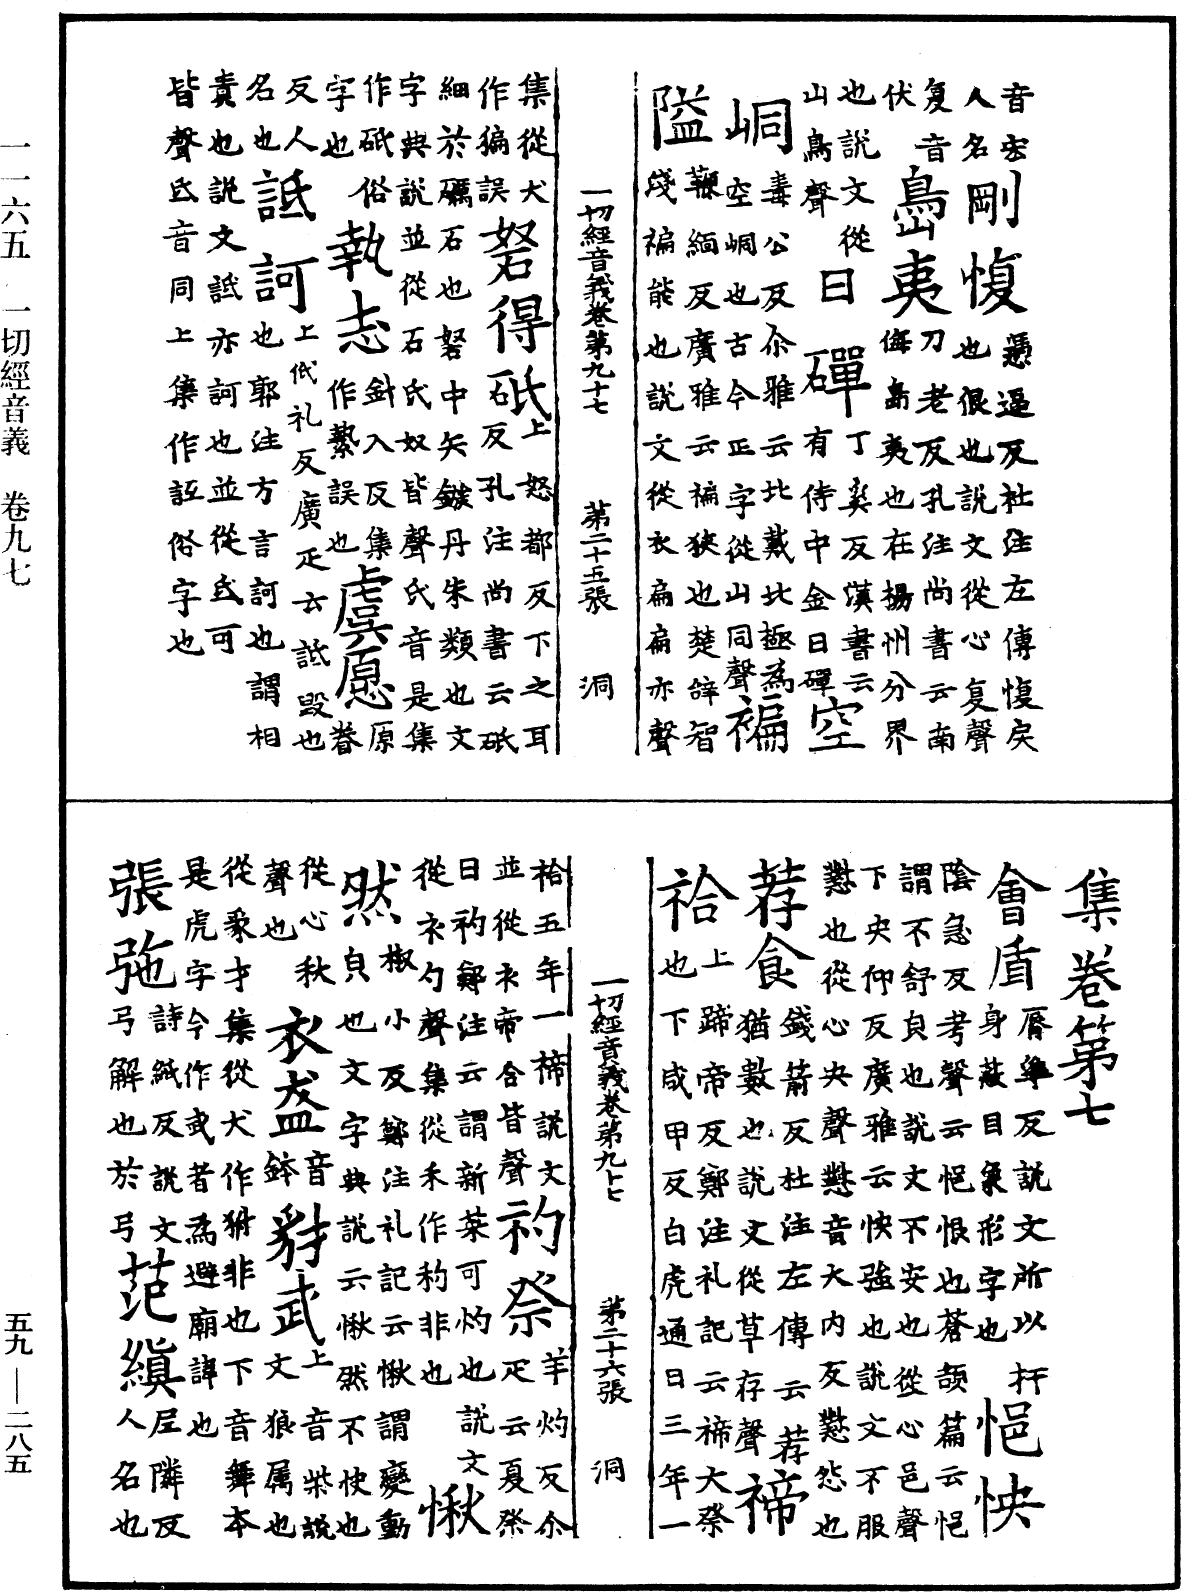 音宏
人名剛愎憑逼反杜注左傳愎戾
也很也說文從心复聲
复音
伏島夷刀老反孔注尚書云南
海島夷也在揚州分界
也說文從
山鳥聲日磾丁奚反漢書云
有侍中金日磾空
峒毒公反尒雅云北戴北極為
空峒也古今正字從山同聲褊
隘鞭緬反廣雅云褊狹也楚辭智
淺褊能也說文從衣扁扁亦聲
一切經音義卷第九十七 第二十五張 洞
集從犬
作猵誤砮得砥上怒都反下之耳
反孔注尚書云砥
細於礪石也砮中矢鏃丹朱類也文
字典說並從石氐奴皆聲氐音是集
作砥俗
字也執志針入反集
作縶誤也虞愿原
眷
反人
名也詆訶上低礼反廣疋云詆毀也
也郭注方言訶也謂相
責也說文詆亦訶也並從言氐可
皆聲氐音同上集作詆俗字也
集卷第七
會盾脣準反說文所以扞
身蔽目象形字也悒怏
陰急反考聲云悒恨也蒼頡篇云悒
謂不舒皃也說文不安也從心邑聲
下央仰反廣雅云怏強也說文不服
懟也從心央聲懟音大內反懟怨也
荐食錢箭反杜注左傳云荐
猶數也說文從草存聲禘
祫上蹄帝反鄭注礼記云禘大祭
也下咸甲反白虎通曰三年一
祫五年一禘說文
並從示帝合皆聲礿祭羊灼反尒
疋云夏祭
曰礿鄭注云謂新菜可灼也說文
從示勺聲集從禾作礿非也愀
然椒小反鄭注礼記云愀謂變動
皃也文字典說云愀然不快也
從心秋
聲也衣盋音
鉢豺武上音柴說
文狼屬也
從豸才集從犬作犲非也下音舞本
是虎字今作武者為避廟諱也
張弛詩紙反說文
弓解也於弓范縝𠮷隣反
人名也
一一六五 一切經音義 卷九七
五九—二八五
一切經音義卷第九十七 第二十六張 洞